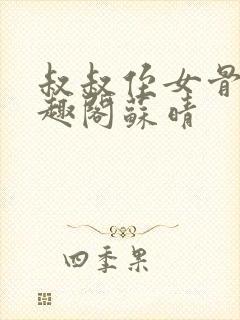 叔叔侄女骨
趣阁蘇晴
四季果